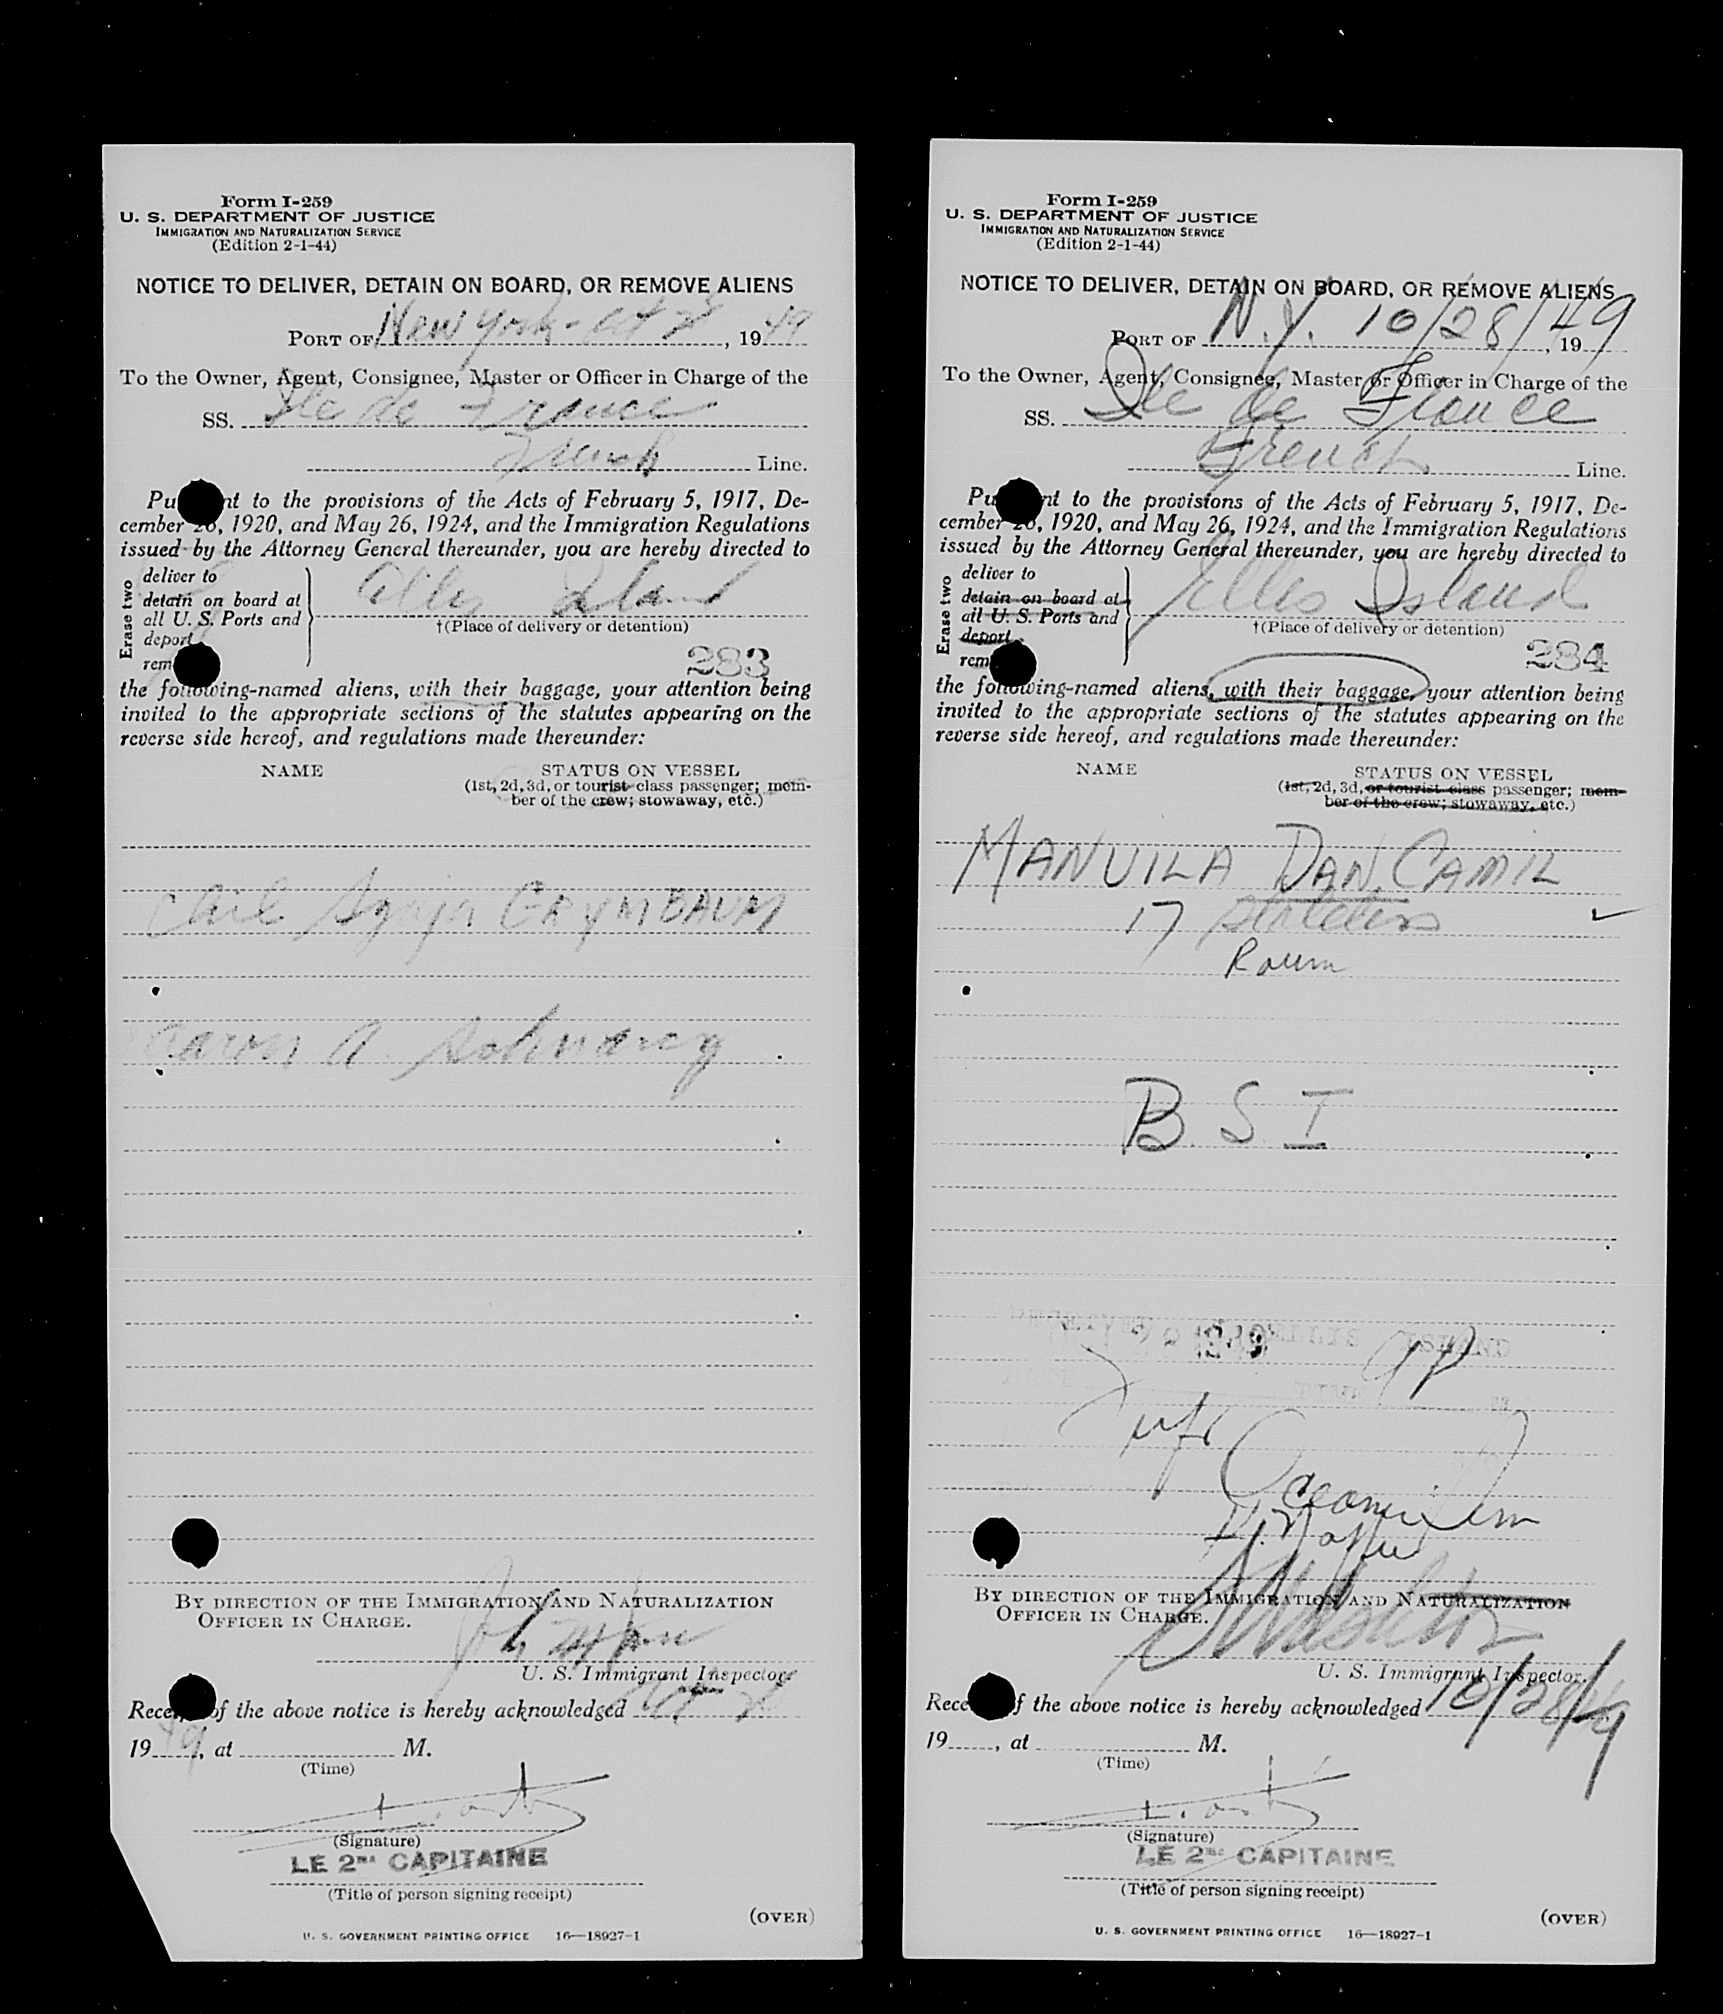 Form I-259
U. S. DEPARTMENT OF JUSTICE
IMMIGRATION AND NATURALIZATION SERVICE
(Edition 2-1-44)
NOTICE TO DELIVER, DETAIN ON BOARD, OR REMOVE ALIENS
PORT OF New York - Oct 28, 1949
To the Owner, Agent, Consignee, Master or Officer in Charge of the
SS. Ile de France
French Line.
Pu nt to the provisions of the Acts of February 5, 1917, De-
cember 26, 1920, and May 26, 1924, and the Immigration Regulations
issued by the Attorney General thereunder, you are hereby directed to
Erase two
deliver to
detain on board at
all U. S. Ports and
deport
rem
Ellis Island
†(Place of delivery or detention)
283
the following-named aliens, with their baggage, your attention being
invited to the appropriate sections of the statutes appearing on the
reverse side hereof, and regulations made thereunder:
NAME STATUS ON VESSEL
(1st, 2d, 3d, or tourist class passenger; mem-
ber of the crew; stowaway, etc.)
GRYMBAUM
Aaron A.
BY DIRECTION OF THE IMMIGRATION AND NATURALIZATION
OFFICER IN CHARGE.
U. S. Immigrant Inspector.
Rece of the above notice is hereby acknowledged Oct 28
1949, at M.
(Time)
(Signature)
LE 2ND CAPITAINE
(Title of person signing receipt)
(OVER)
U. S. GOVERNMENT PRINTING OFFICE 16—18927-1
Form I-259
U. S. DEPARTMENT OF JUSTICE
IMMIGRATION AND NATURALIZATION SERVICE
(Edition 2-1-44)
NOTICE TO DELIVER, DETAIN ON BOARD, OR REMOVE ALIENS
PORT OF N.Y. 10/28/49, 19
To the Owner, Agent, Consignee, Master or Officer in Charge of the
SS. Ile de France
French Line.
Pu nt to the provisions of the Acts of February 5, 1917, De-
cember 26, 1920, and May 26, 1924, and the Immigration Regulations
issued by the Attorney General thereunder, you are hereby directed to
Erase two
deliver to
detain on board at
all U. S. Ports and
deport
rem
Ellis Island
†(Place of delivery or detention)
284
the following-named aliens, with their baggage, your attention being
invited to the appropriate sections of the statutes appearing on the
reverse side hereof, and regulations made thereunder:
NAME STATUS ON VESSEL
(1st, 2d, 3d, or tourist class passenger; mem-
ber of the crew; stowaway, etc.)
MANUILA DAN, CAMIL
17 stateless
Roum
B. S. I
BY DIRECTION OF THE IMMIGRATION AND NATURALIZATION
OFFICER IN CHARGE.
U. S. Immigrant Inspector.
Rece f the above notice is hereby acknowledged 10/28/49
19 , at M.
(Time)
(Signature)
LE 2ND CAPITAINE
(Title of person signing receipt)
(OVER)
U. S. GOVERNMENT PRINTING OFFICE 16—18927-1